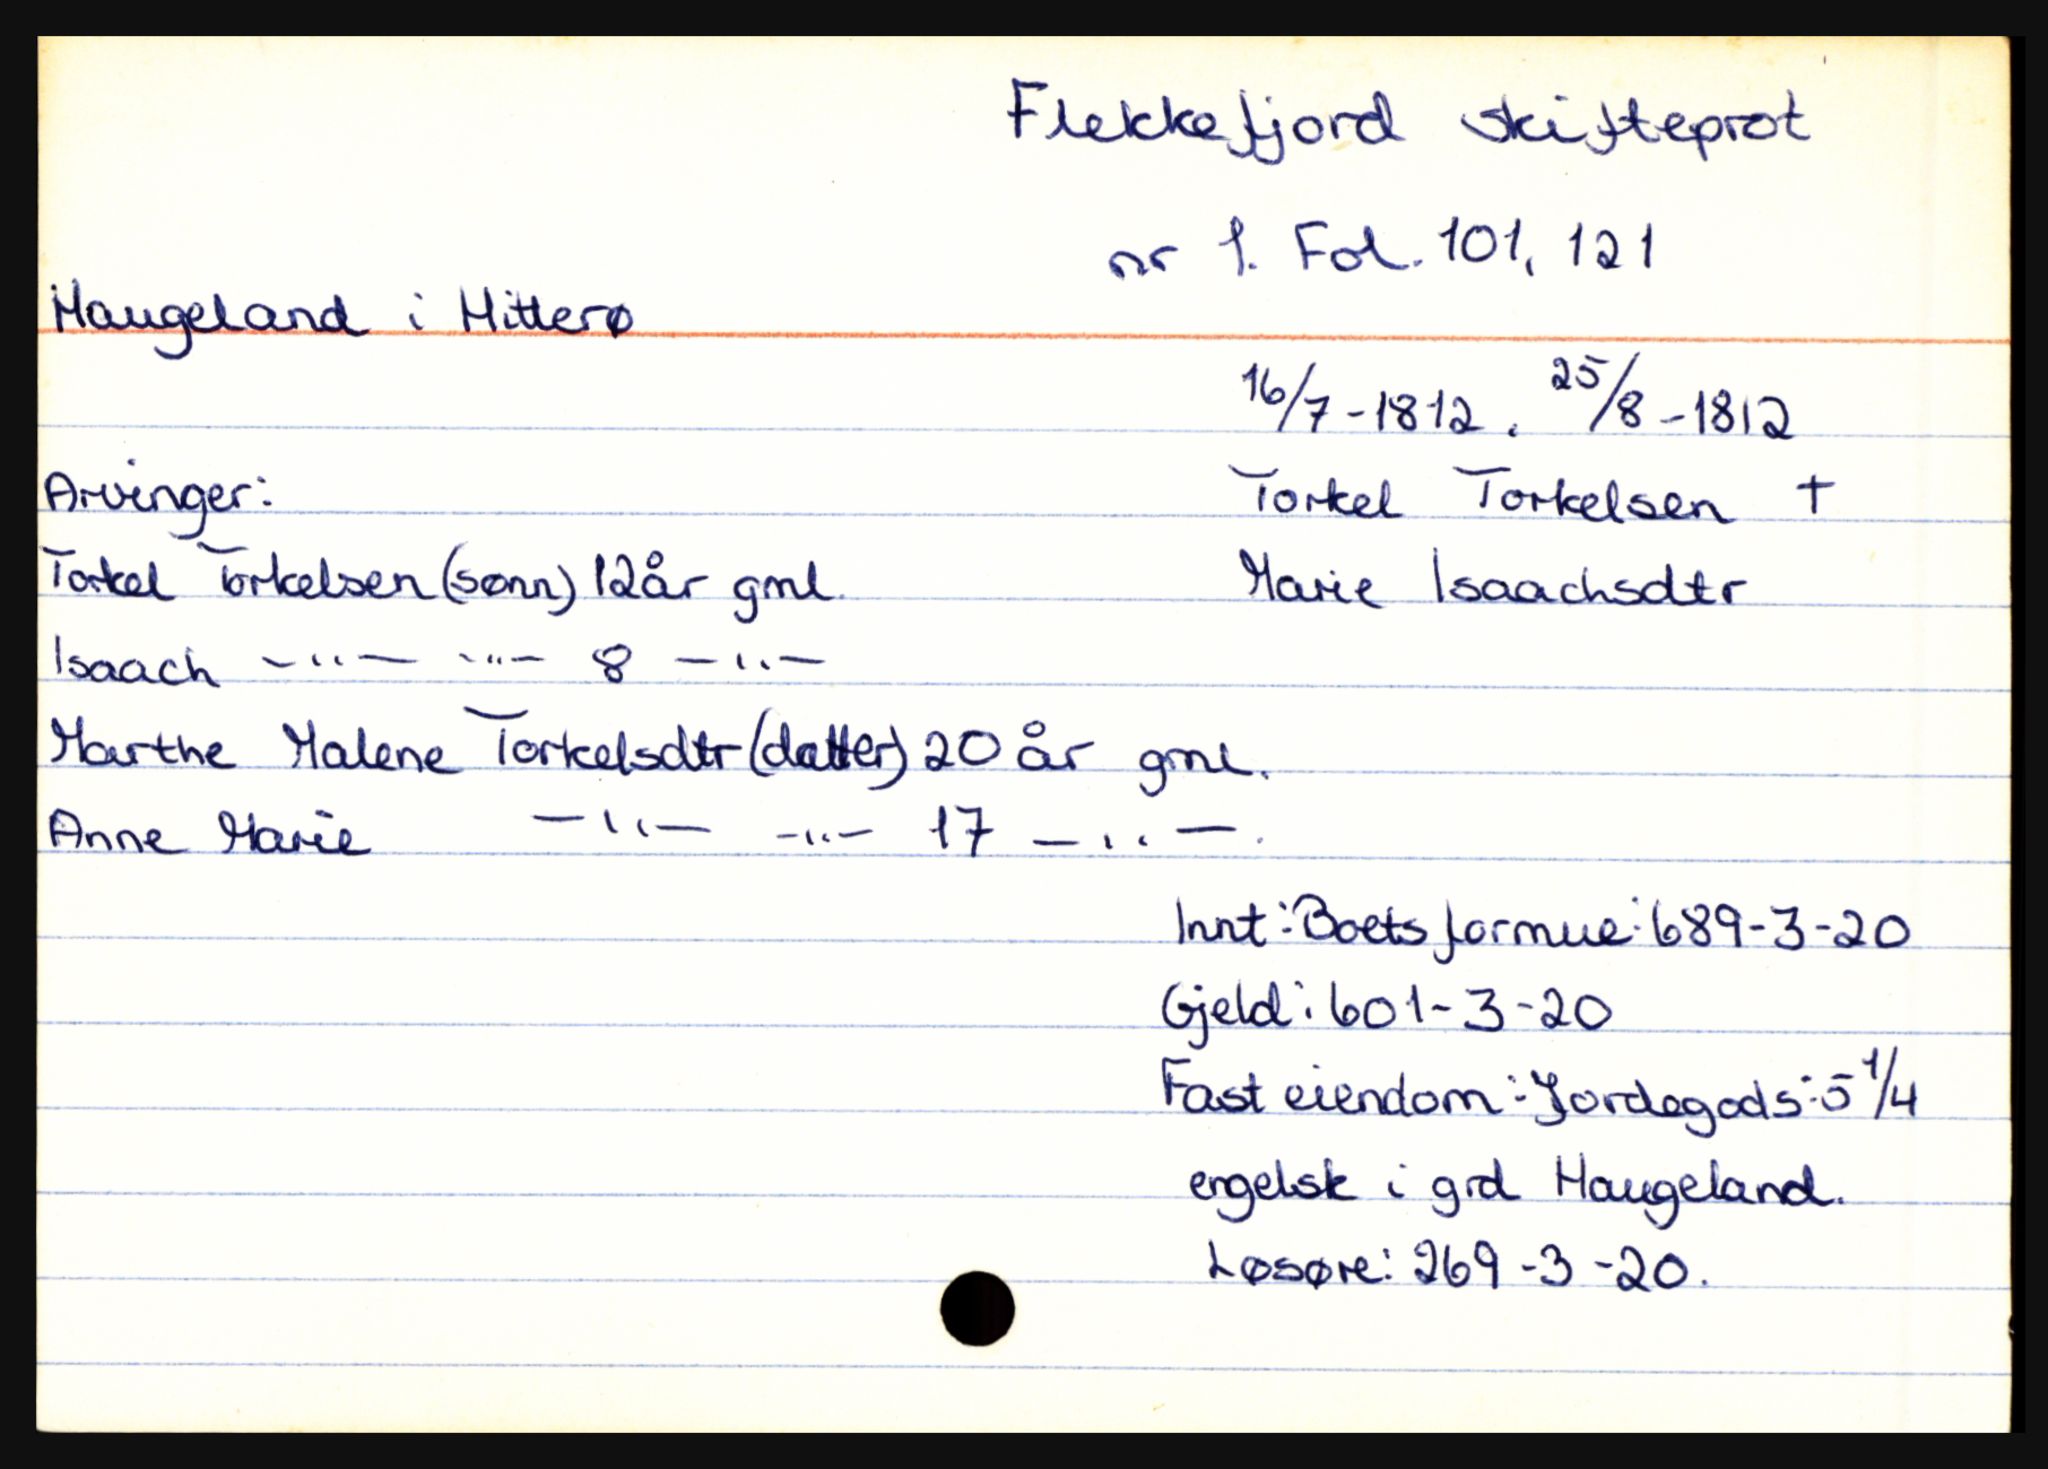 Flekkefjord skifteprot
nr 1. Fol. 101, 121
Haugeland i Hitterø
16/7-1812. 25/8-1812
Arvinger:
Torkel Torkelsen †
Torkel Torkelsen (sønn) 12år gml.
Marie Isaachsdtr
Isaach -"- -"- 8 -"-
Marthe Malene Torkelsdtr (datter) 20 år gml.
Anne Marie -"- -"- 17 -"-.
Innt: Boets formue: 689-3-20
Gjeld: 601-3-20
Fast eiendom: Jordegods: 5 1/4
engelsk i grd Haugeland.
Løsøre: 269-3-20.